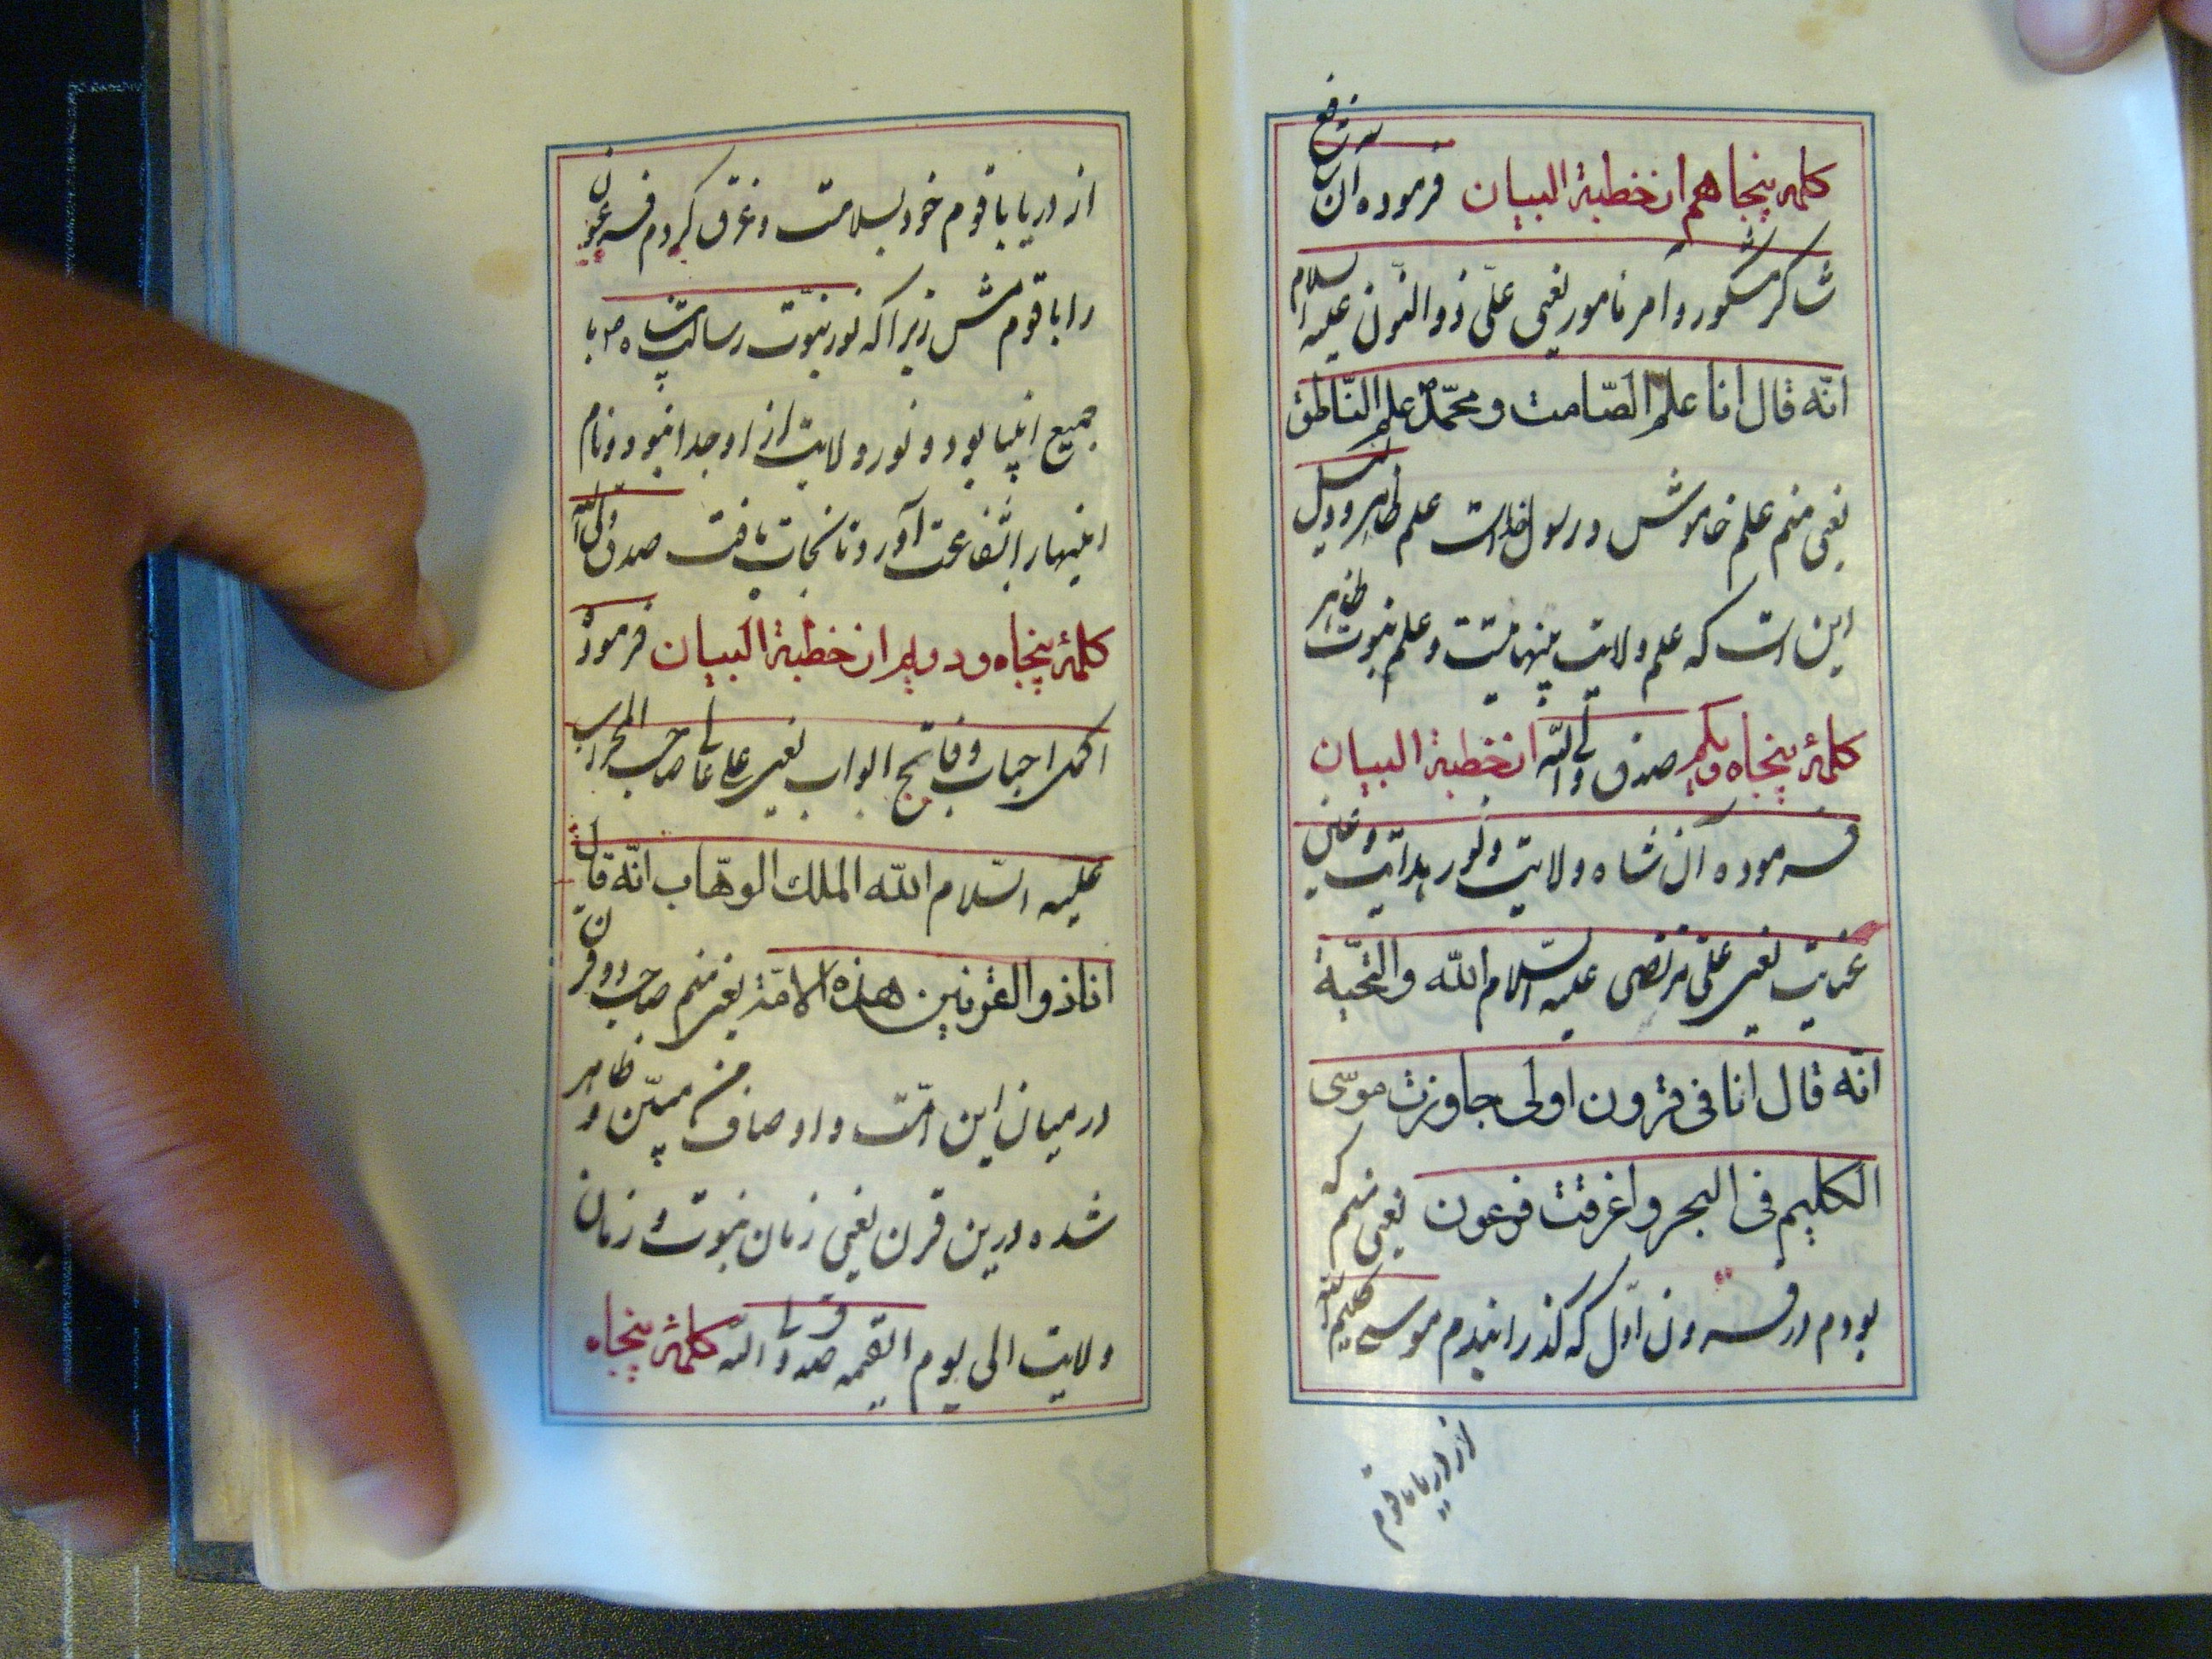 کلمۀ پنجاهم از خطبة البیان فرموده آن
شاکر مشکور و آمر نامور یعنی علی ذوالنون علیه السلام
انّه قال انا علم الصّامت و محمّد علم النّاطق
یعنی منم علم خاموش و رسول خداست علم ظاهر و دلیل
این است که علم ولایت پنهانیست و علم نبوت ظاهر
کلمۀ پنجاه ویکم صدق ولی الله از خطبة البیان
فرموده آن شاه ولایت و نور هدایت و عین
عنایت یعنی علی مرتضی علیه السلام الله والتحیّة
انّه قال انا فی قرون اولی جاوزت موسی
الکلیم فی البحر و اغرقت فرعون یعنی منم که
بودم در قرون اوّل که گذرانیدم موسی کلیم الله
از دریا با قوم
از دریا با قوم خود بسلامت و غرق کردم فرعون
را با قومش زیرا که نور نبوّت رسالت پناه ص با
جمیع انبیا بود و نور ولایت از او جدا نبود و نام
اینها را بشفاعت آورد تا نجات یافت صدق ولی الله
کلمۀ پنجاه و دویم از خطبة البیان فرمود
اکمل احباب و فاتح ابواب یعنی علی عالی صاحب المحراب
علیه السّلام الله الملك الوهّاب انّه قال
انا ذو القرنین هذه الامّة یعنی منم صاحب دو قرن
در میان این امّت و اوصاف من مبیّن و ظاهر
شده درین قرن یعنی زمان نبوت و زمان
ولایت الی یوم القیمه صدق ولی الله کلمۀ پنجاه